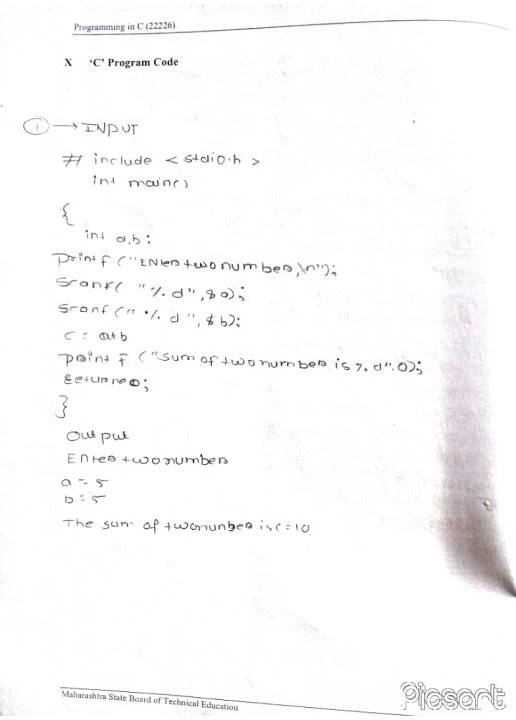 Programming in C (22226)
X 'C' Program Code
1 → INPUT
# include < stdio.h >
int main()
{
int a,b:
printf ("ENter two number,\n");
Scanf( "%. d", & a);
Scanf (" %. d ", & b);
c = a+b
print f ("Sum of two number is %. d".0);
return 0;
}
Out put
ENter two number
a = 5
b = 5
The sum of two number is c = 10
Maharashtra State Board of Technical Education
Picsart